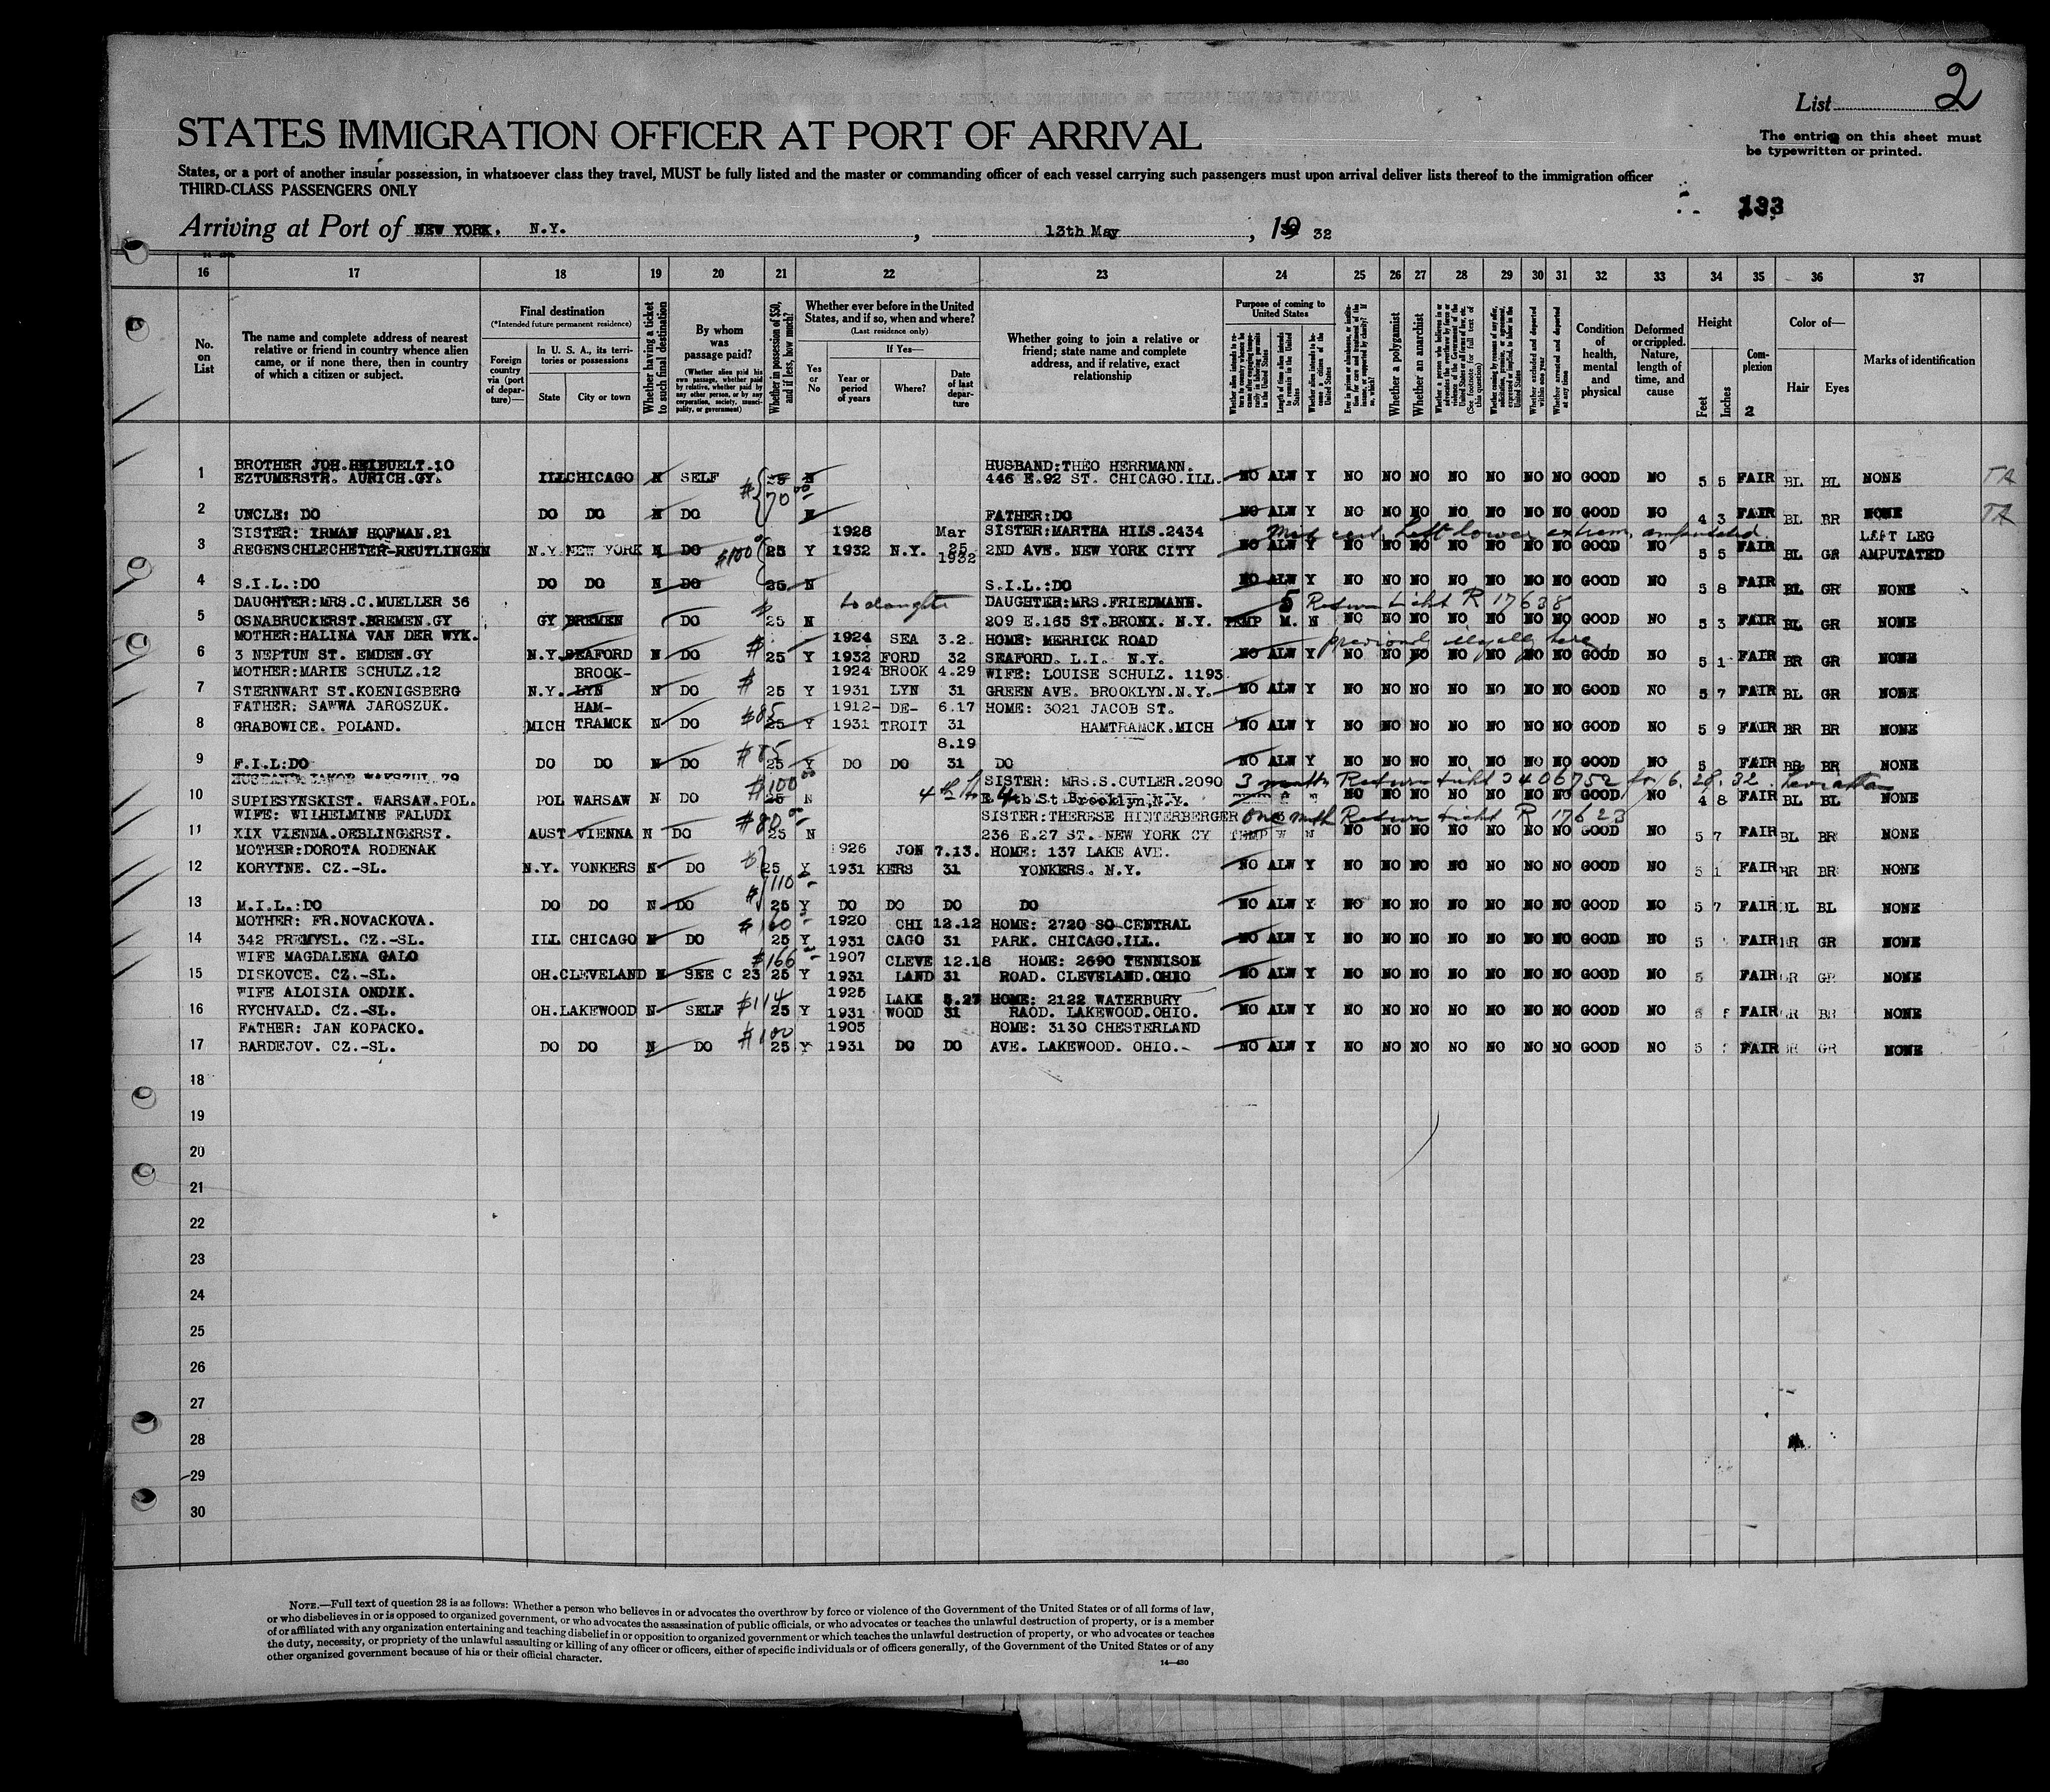 List 2
STATES IMMIGRATION OFFICER AT PORT OF ARRIVAL
The entries on this sheet must
be typewritten or printed.
States, or a port of another insular possession, in whatsoever class they travel, MUST be fully listed and the master or commanding officer of each vessel carrying such passengers must upon arrival deliver lists thereof to the immigration officer
THIRD-CLASS PASSENGERS ONLY
133
Arriving at Port of NEW YORK. N.Y. , 13th May , 19 32
16 17 18 19 20 21 22 23 24 25 26 27 28 29 30 31 32 33 34 35 36 37
No. on List
The name and complete address of nearest relative or friend in country whence alien came, or if none there, then in country of which a citizen or subject.
Final destination
(*Intended future permanent residence)
Foreign country via (port of departure)
In U. S. A., its territories or possessions
State
City or town
Whether having a ticket to such final destination
By whom was passage paid?
(Whether alien paid his own passage, whether paid by relative, whether paid by any other person, or by any corporation, society, municipality, or government)
Whether in possession of $50, and if less, how much?
Whether ever before in the United States, and if so, when and where?
(Last residence only)
Yes or No
If Yes—
Year or period of years
Where?
Date of last departure
Whether going to join a relative or friend; state name and complete address, and if relative, exact relationship
Purpose of coming to United States
Length of time alien intends to remain in the United States
Whether alien intends to become a citizen of the United States
Whether a polygamist
Whether an anarchist
Whether excluded and deported within one year
Whether arrested and deported at any time
Condition of health, mental and physical
Deformed or crippled. Nature, length of time, and cause
Height
Feet
Inches
Complexion
2
Color of—
Hair
Eyes
Marks of identification
BROTHER JOH.HEIBUELT.10 HUSBAND:THEO HERRMANN.
1 EZTUMERSTR. AURICH.GY. ILL CHICAGO N SELF 25 N 446 E.92 ST. CHICAGO.ILL. NO ALW Y NO NO NO NO NO NO NO GOOD NO 5 5 FAIR BL BL NONE TA
$70 00
2 UNCLE: DO DO DO N DO N FATHER:DO NO ALW Y NO NO NO NO NO NO NO GOOD NO 4 3 FAIR BL BR NONE TA
SISTER: IRMAN HOFMAN.21 1928 Mar SISTER:MARTHA HILS.2434 Med cert. Left lower extrem. amputated. LEFT LEG
3 REGENSCHLECHETER-REUTLINGEN N.Y. NEW YORK N DO $100 25 Y 1932 N.Y. 25 1932 2ND AVE. NEW YORK CITY NO ALW Y NO NO NO NO NO NO NO GOOD NO 5 5 FAIR BL GR AMPUTATED
4 S.I.L.:DO DO DO N DO 25 N S.I.L.:DO NO ALW Y NO NO NO NO NO NO NO GOOD NO 5 8 FAIR BL GR NONE
DAUGHTER:MRS.C.MUELLER 36 to daughter DAUGHTER:MRS.FRIEDMANN. 5 Return ticket R 17638
5 OSNABRUCKERST.BREMEN.GY GY BREMEN DO 25 N 209 E.165 ST.BRONX. N.Y. TEMP M. N NO NO NO NO NO NO NO GOOD NO 5 3 FAIR BL GR NONE
MOTHER:HALINA VAN DER WYK. 1924 SEA 3.2. HOME: MERRICK ROAD previously illegally here
6 3 NEPTUN ST. EMDEN.GY N.Y. SEAFORD N DO $ 25 Y 1932 FORD 32 SEAFORD. L.I. N.Y. NO ALW Y NO NO NO NO NO NO NO GOOD NO 5 1 FAIR BR GR NONE
MOTHER:MARIE SCHULZ.12 BROOK- 1924 BROOK 4.29 WIFE: LOUISE SCHULZ. 1193
7 STERNWART ST.KOENIGSBERG N.Y. LYN N DO $ 25 Y 1931 LYN 31 GREEN AVE. BROOKLYN.N.Y. NO ALW Y NO NO NO NO NO NO NO GOOD NO 5 7 FAIR BL GR NONE
FATHER: SAWWA JAROSZUK. HAM- 1912- DE- 6.17 HOME: 3021 JACOB ST.
8 GRABOWICE. POLAND. MICH TRAMCK N DO $85 25 Y 1931 TROIT 31 HAMTRAMCK.MICH NO ALW Y NO NO NO NO NO NO NO GOOD NO 5 9 FAIR BR BR NONE
8.19
9 F.I.L:DO DO DO N DO $85 25 Y DO DO 31 DO NO ALW Y NO NO NO NO NO NO NO GOOD NO 5 FAIR BR BR NONE
79 $100 00 SISTER: MRS.S.CUTLER.2090 3 months Return ticket 3406752 for 6.28.32 Leviathan
10 SUPIESYNSKIST. WARSAW.POL. POL WARSAW N DO 25 N 4th St Brooklyn,N.Y. NO NO NO NO NO NO NO GOOD NO 4 8 FAIR BL BL NONE
WIFE: WILHELMINE FALUDI $80 SISTER:THERESE HINTERBERGER One month Return ticket R 17623
11 XIX VIENNA.OEBLINGERST. AUST VIENNA N DO 25 N 236 E.27 ST. NEW YORK CY TEMP N NO NO NO NO NO NO NO GOOD NO 5 7 FAIR BL BR NONE
MOTHER:DOROTA RODENAK 1926 JON 7.13. HOME: 137 LAKE AVE.
12 KORYTNE. CZ.-SL. N.Y. YONKERS N DO 25 Y 1931 KERS 31 YONKERS. N.Y. NO ALW Y NO NO NO NO NO NO NO GOOD NO 5 1 FAIR BR BR NONE
$110
13 M.I.L.:DO DO DO N DO 25 Y DO DO DO DO NO ALW Y NO NO NO NO NO NO NO GOOD NO 5 7 FAIR BL BL NONE
MOTHER: FR.NOVACKOVA. $160 1920 CHI 12.12 HOME: 2720 SO CENTRAL
14 342 PREMYSL. CZ.-SL. ILL CHICAGO N DO 25 Y 1931 CAGO 31 PARK. CHICAGO.ILL. NO ALW Y NO NO NO NO NO NO NO GOOD NO 5 FAIR GR NONE
WIFE MAGDALENA GALO $166 1907 CLEVE 12.18 HOME: 2690 TENNISON
15 DISKOVCE. CZ.-SL. OH.CLEVELAND N SEE C 23 25 Y 1931 LAND 31 ROAD. CLEVELAND.OHIO NO ALW Y NO NO NO NO NO NO NO GOOD NO 5 FAIR GR NONE
WIFE ALOISIA ONDIK. 1925 LAKE 5.27 HOME: 2122 WATERBURY
16 RYCHVALD. CZ.-SL. OH.LAKEWOOD N SELF $114 25 Y 1931 WOOD 31 RAOD. LAKEWOOD.OHIO. NO ALW Y NO NO NO NO NO NO NO GOOD NO 5 FAIR NONE
FATHER: JAN KOPACKO. $100 1905 HOME: 3130 CHESTERLAND
17 BARDEJOV. CZ.-SL. DO DO N DO 25 Y 1931 DO DO AVE. LAKEWOOD. OHIO. NO ALW Y NO NO NO NO NO NO NO GOOD NO 5 FAIR GR NONE
18
19
20
21
22
23
24
25
26
27
28
29
30
NOTE.—Full text of question 28 is as follows: Whether a person who believes in or advocates the overthrow by force or violence of the Government of the United States or of all forms of law,
or who disbelieves in or is opposed to organized government, or who advocates the assassination of public officials, or who advocates or teaches the unlawful destruction of property, or is a member
of or affiliated with any organization entertaining and teaching disbelief in or opposition to organized government or which teaches the unlawful destruction of property, or who advocates or teaches
the duty, necessity, or propriety of the unlawful assaulting or killing of any officer or officers, either of specific individuals or of officers generally, of the Government of the United States or of any
other organized government because of his or their official character.
14—430